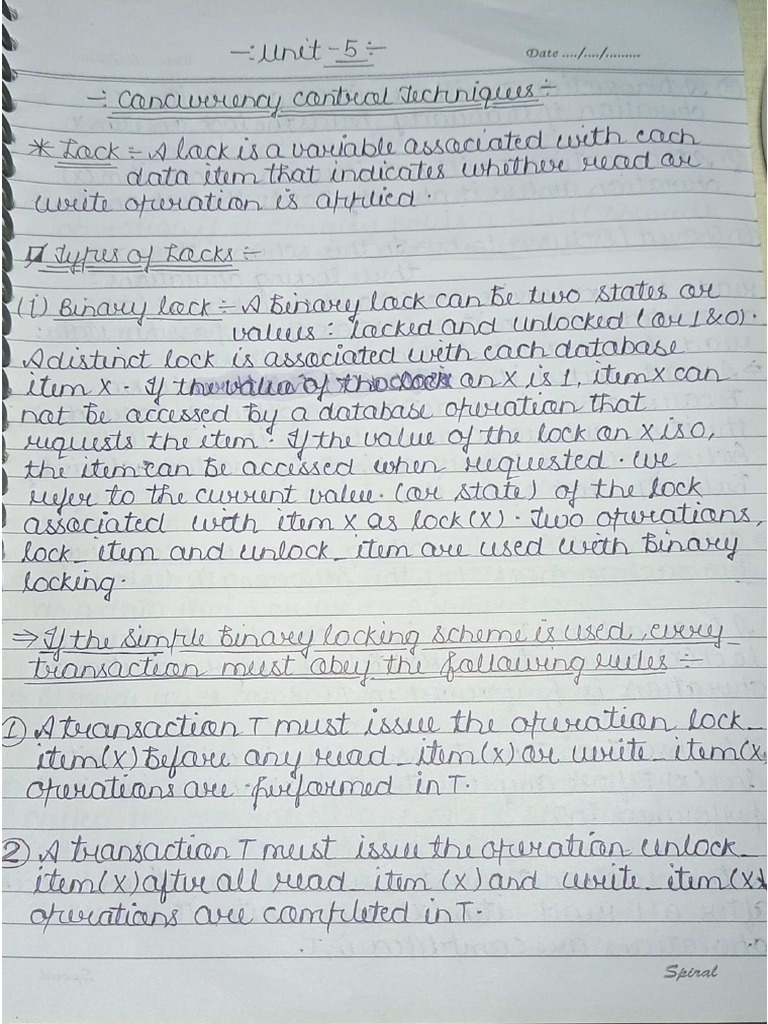 -: Unit - 5 ÷
Date ..../..../.........
÷ Concurrency control Techniques ÷
* Lock ÷ A lock is a variable associated with each
data item that indicates whether read or
write operation is applied.
Types of Locks ÷
(i) Binary lock ÷ A Binary lock can be two states or
values : locked and unlocked (or 1 & 0).
A distinct lock is associated with each database
item X. If the value of the lock on X is 1, item X can
not be accessed by a database operation that
requests the item. If the value of the lock on X is 0,
the item can be accessed when requested. we
refer to the current value. (or state) of the lock
associated with item X as lock (X). Two operations,
lock_item and unlock_item are used with Binary
locking.
⇒ If the simple Binary locking scheme is used, every
transaction must obey the following rules ÷
① A transaction T must issue the operation lock_
item(X) Before any read_item(X) or write_item(X
operations are performed in T.
② A transaction T must issue the operation unlock_
item(X) after all read_item (X) and write_item(X)
operations are completed in T.
Spiral